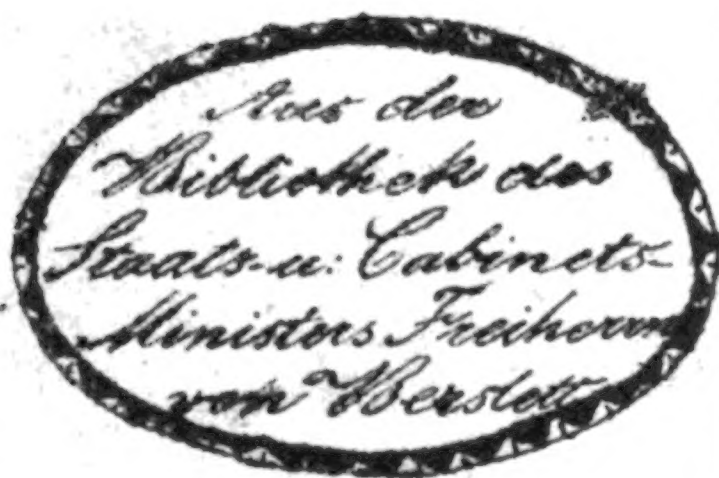 Aus der
Bibliothek des
Staats-u: Cabinets-
Ministers Freiherrn
von Berstett